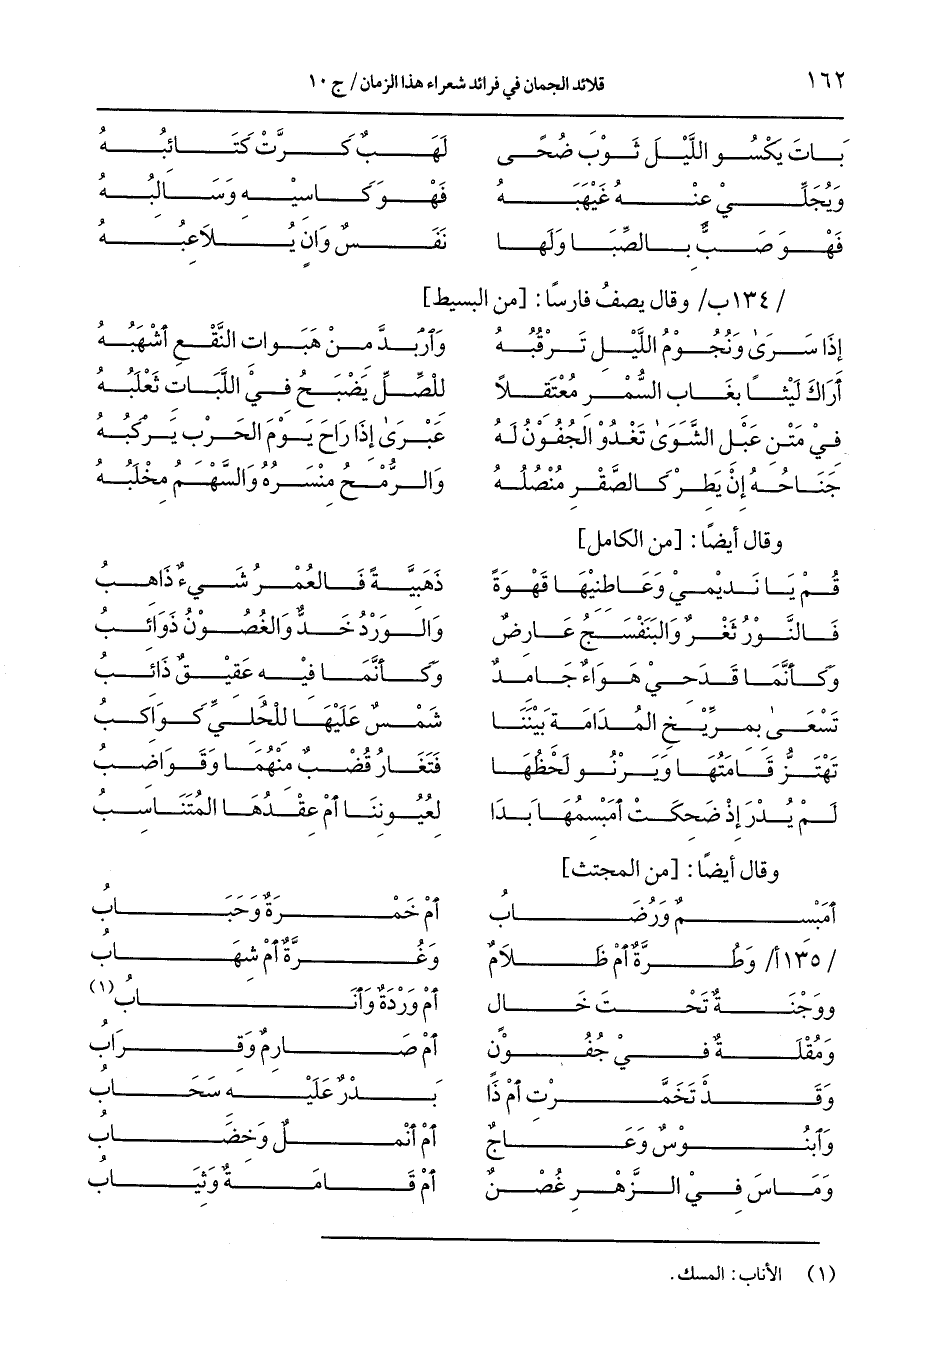 ١٦٢ قلائد الجمان في فرائد شعراء هذا الزمان/ ج ١٠
بَاتَ يَكْسُو اللَّيْلَ ثَوْبَ ضُحًى لَهَبٌ كَرَّتْ كَتَائِبُهُ
وَيُجَلِّيْ عنْهُ غَيْهَبَهُ فَهْوَ كَاسِيْهِ وَسَالِبُهُ
فَهْوَ صَبٌّ بِالصِّبَا وَلَهَا نَفَسٌ وَانٍ يُلاَعِبُهُ
/ ١٣٤ب/ وقال يصفُ فارسًا: [من البسيط]
إذَا سَرَىٰ وَنُجُوْمُ اللَّيْلِ تَرْقُبُهُ وَٱرْبَدَّ مِنْ هَبَوات النَّقْعِ أشْهَبُهُ
أرَاكَ لَيْثًا بغَابِ السُّمْرِ مُعْتَقلاً للصِّلِّ يَضْبَحُ فِيْ اللَّبَات ثَعْلَبُهُ
فِيْ مَتْنِ عَبْلِ الشَّوَىٰ تَغْدُوْ الجُفُوْنُ لَهُ عَبْرَىٰ إذَا رَاحَ يَوْمَ الحَرْب يَرْكَبُهُ
جَنَاحُهُ إنْ يَطِرْ كَالصَّقْرِ مُنْصُلُهُ وَالرُّمْحُ مِنْسَرُهُ وَالسَّهْمُ مِخْلَبُهُ
وقال أيضًا: [من الكامل]
قُمْ يَا نَديْمِيْ وَعَاطنِيْهَا قَهْوَةً ذَهَبِيَّةً فَالعُمْرُ شَيءٌ ذَاهِبُ
فَالنَّوْرُ ثَغْرٌ وَالبَنَفْسَجُ عَارضٌ وَالوَرْدُ خَدٌّ وَالغُصُوْنُ ذَوَائبُ
وَكَأنَّمَا قَدَحِيْ هَوَاءٌ جَامدٌ وَكَأنَّمَا فِيْه عَقيْقٌ ذَائبُ
تَسْعَىٰ بمرِّيْخِ المُدَامَة بَيْنَنَا شَمْسٌ عَلَيْهَا للْحُليِّ كَوَاكبُ
تَهْتَزُّ قَامَتُهَا وَيَرْنُو لَحْظُهَا فَتَغَارُ قُضْبٌ منْهُمَا وَقَوَاضِبُ
لَمْ يُدْرَ إذْ ضَحكَتْ أمَبْسِمُهَا بَدَا لعُيُوننَا أمْ عقْدُهَا المُتَنَاسبُ
وقال أيضًا: [من المجتث]
أمَبْسِمٌ وَرُضَابُ أمْ خَمْرَةٌ وَحَبَابُ
/ ١٣٥أ/ وَطُرَّةٌ أمْ ظَلاَمٌ وَغُرَّةٌ أمْ شِهَابُ
ووَجْنَةٌ تَحْتَ خَال أمْ وَرْدَةٌ وَأنَابُ(١)
وَمُقْلَةٌ فِيْ جُفُوْنٍ أمْ صَارِمٌ وَقِرَابُ
وَقَدْ تَخَمَّرْت أمْ ذَا بَدْرٌ عَلَيْه سَحَابُ
وَآبنُوْسٌ وَعَاجٌ أمْ أنْمُلٌ وَخِضَابُ
وَمَاسَ فِيْ الزَّهْر غُصْنٌ أمْ قَامَةٌ وَثِيَابُ
(١) الأناب: المسك.